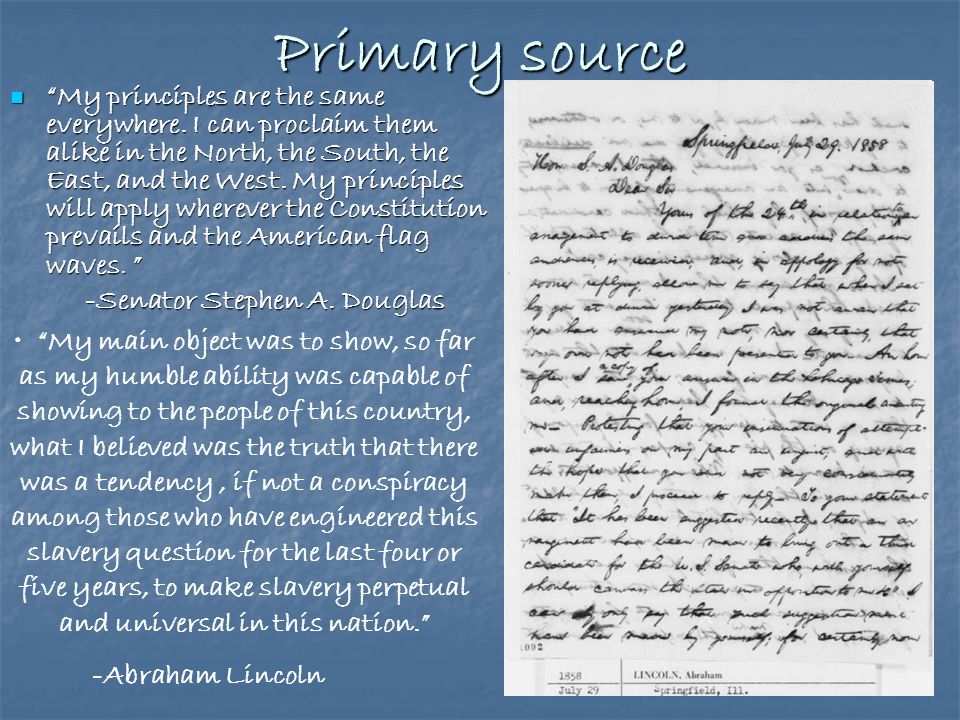 Primary source
“My principles are the same
everywhere. I can proclaim them
alike in the North, the South, the
East, and the West. My principles
will apply wherever the Constitution
prevails and the American flag
waves. ”
-Senator Stephen A. Douglas
• “My main object was to show, so far
as my humble ability was capable of
showing to the people of this country,
what I believed was the truth that there
was a tendency , if not a conspiracy
among those who have engineered this
slavery question for the last four or
five years, to make slavery perpetual
and universal in this nation.”
-Abraham Lincoln
Springfield, July 29. 1858
Hon. S. A. Douglas
Dear Sir
Yours of the 24th in relation to an
arrangement to divide time and address the same
audiences, is received; and, in appology for not
sooner replying, allow me to say that when I sat
by you at dinner yesterday I was not aware that
you had answered my note, nor certainly, that
my own note had been presented to you. An hour
after I saw a copy of your answer in the Chicago Times;
and, reaching home, I found the original awaiting
me. Protesting that your insinuations of attempt-
ed unfairness on my part are unjust; and with
the hope that you did not very considerately
make them, I proceed to reply. To your statement
that "It has been suggested recently that an ar-
rangement had been made to bring out a third
candidate for the U. S. Senate who, with yourself,
should canvass the state in opposition to me &c" I
can only say that such suggestion must
have been made by yourself; for certainly none
1092
1858 LINCOLN, Abraham
July 29 Springfield, Ill.